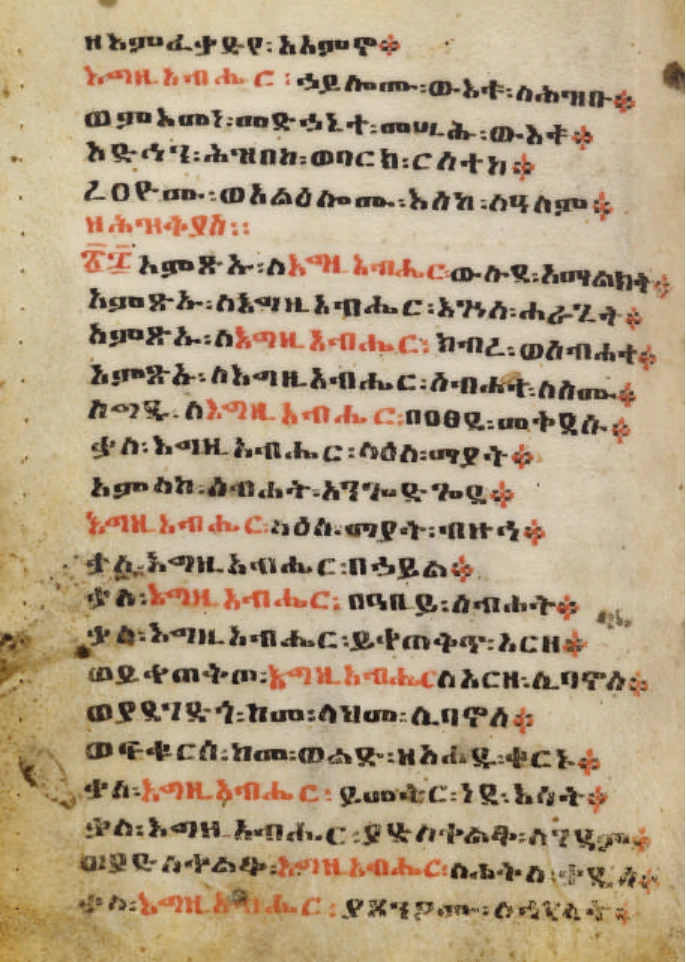 ዘእምፈቃድየ፡አአምኖ፨
እግዚአብሔር፡ኃይሎሙ፡ውእቱ፡ለሕዝቡ፨
ወምእመነ፡መድኃኒተ፡መሢሑ፡ውእቱ፨
አድኅን፡ሕዝበከ፡ወባርክ፡ርስተከ፨
ረዐዮሙ፡ወአልዕሎሙ፡እስከ፡ለዓለም፨
ዘሕዝቅያስ፡፡
፳፰ አምጽኡ፡ለእግዚአብሔር፡ውሉደ፡አማልክት፨
አምጽኡ፡ለእግዚአብሔር፡እጓለ፡ሐራጊት፨
አምጽኡ፡ለእግዚአብሔር፡ክብረ፡ወስብሐተ፨
አምጽኡ፡ለእግዚአብሔር፡ስብሐተ፡ለስሙ፨
ስግዱ፡ለእግዚአብሔር፡በዐፀደ፡መቅደሱ፨
ቃለ፡እግዚአብሔር፡ላዕለ፡ማያት፨
አምላከ፡ስብሐት፡አንጐድጐደ፨
እግዚአብሔር፡ላዕለ፡ማያት፡ብዙኅ፨
ቃለ፡እግዚአብሔር፡በኃይል፨
ቃለ፡እግዚአብሔር፡በዓቢይ፡ስብሐት፨
ቃለ፡እግዚአብሔር፡ይቀጠቅጥ፡አርዘ፨
ወይቀጠቅጦ፡እግዚአብሔር፡ለአርዘ፡ሊባኖስ፨
ከመ፡ላህመ፡ሊባኖስ፨
ወፍቁርሰ፡ከመ፡ወልድ፡ዘአሐዱ፡ቀርኑ፨
ቃለ፡እግዚአብሔር፡ይመትር፡ነደ፡እሳት፨
ቃለ፡እግዚአብሔር፡ያድለቀልቆ፡ለገዳም፨
ወያድለቀልቆ፡እግዚአብሔር፡ለሐቅለ፡ቃዴስ፨
ቃለ፡እግዚአብሔር፡ያጸንዖሙ፡